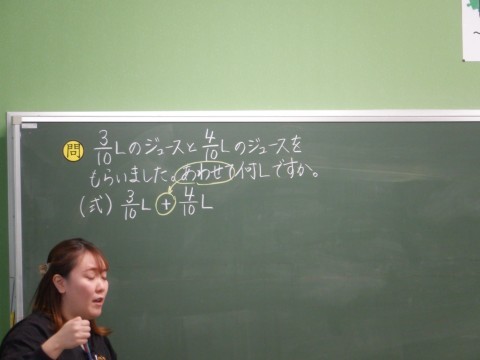 問 3/10Lのジュースと4/10Lのジュースを
もらいました。あわせて何Lですか。
(式) 3/10L + 4/10L